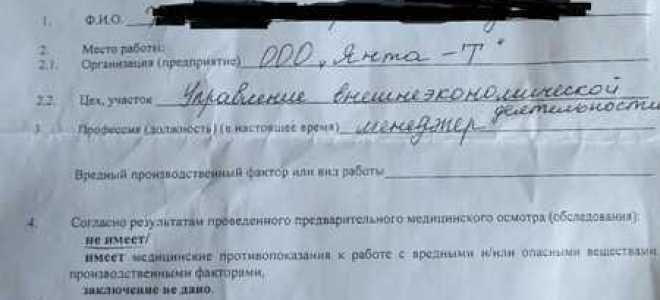 1. Ф.И.О.
2. Место работы:
2.1. Организация (предприятие) ООО „Янта -Т"
2.2. Цех, участок Управление внешнеэкономической
деятельности
3. Профессия (должность) (в настоящее время) менеджер
Вредный производственный фактор или вид работы
4. Согласно результатам проведенного предварительного медицинского осмотра (обследования):
не имеет/
имеет медицинские противопоказания к работе с вредными и/или опасными веществами
производственными факторами,
заключение не дано.